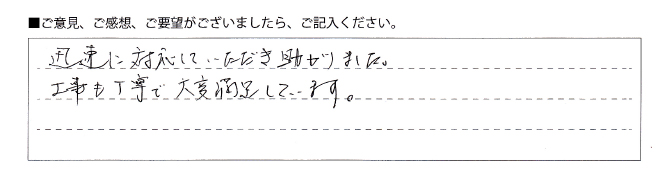 ■ご意見、ご感想、ご要望がございましたら、ご記入ください。
迅速に対応していただき助かりました。
工事も丁寧で大変満足しています。